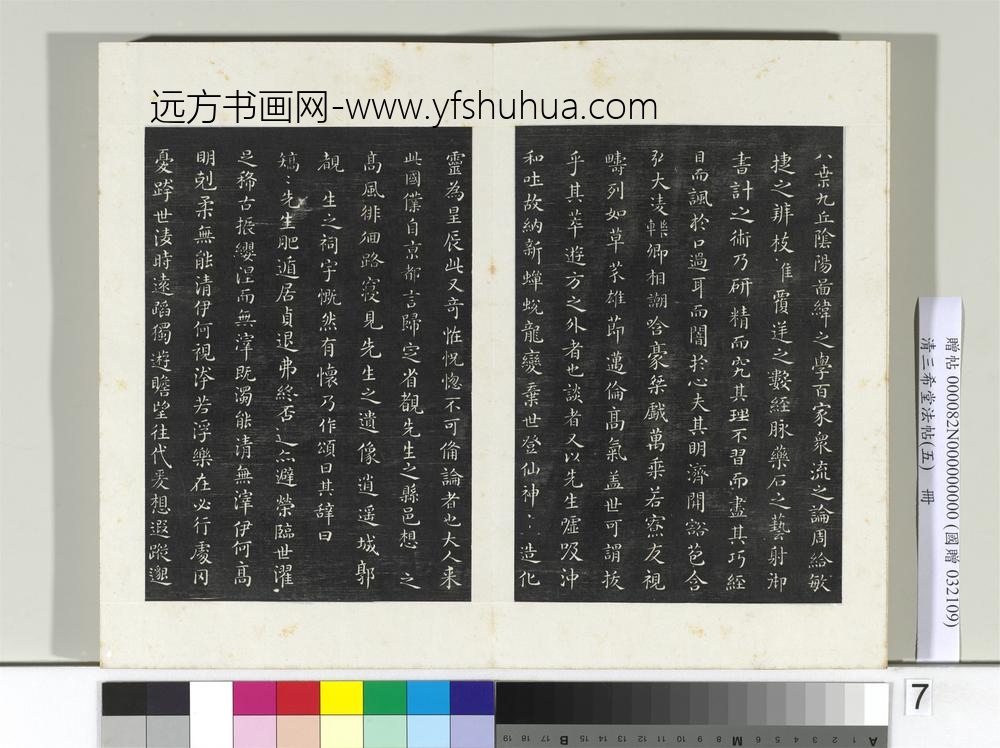 远方书画网-www.yfshuhua.com
八索九丘陰陽啚緯之學百家衆流之論周給敏
捷之辨枝准覆逆之數經脉藥石之藝射御
書計之術乃研精而究其理不習而盡其巧經
目而諷於口過耳而闇於心夫其明濟開豁苞含
弘大凌轢卿相謿哈豪桀戲萬乘若寮友視
疇列如草芥雄莭邁倫髙氣盖世可謂拔
乎其萃遊方之外者也談者又以先生噓吸沖
和吐故納新蟬蛻龍變棄世登仙神〻造化
靈為星辰此又竒恠怳惚不可備論者也大人来
此國僕自京都言歸定省覩先生之縣邑想 之
髙風徘徊路寑見先生之遺像逍遥城郭
覩 生之祠宇慨然有懷乃作頌曰其辞曰
矯〻先生肥遁居貞退弗終否進亦避榮臨世濯
足稀古振纓涅而無滓既濁能清無滓伊何髙
明剋柔無能清伊何視洿若浮樂在必行處冈
憂跨世淩時遠蹈獨遊瞻望往代爰想遐蹤邈
贈帖 000082N000000000 (國贈 032109)
清三希堂法帖(五) 冊
7
19 18 17 B 16 15 14 13 12 11 10 M 9 8 7 6 5 4 3 2 1 A